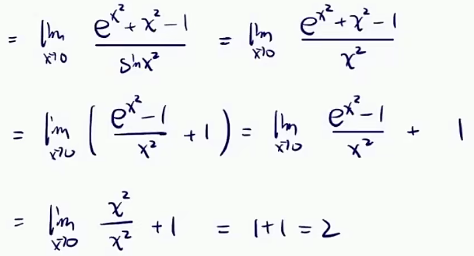 = lim x→0 (e^(x²) + x² - 1) / (sin x²) = lim x→0 (e^(x²) + x² - 1) / (x²)
= lim x→0 ( (e^(x²) - 1) / (x²) + 1 ) = lim x→0 (e^(x²) - 1) / (x²) + 1
= lim x→0 (x²) / (x²) + 1 = 1 + 1 = 2